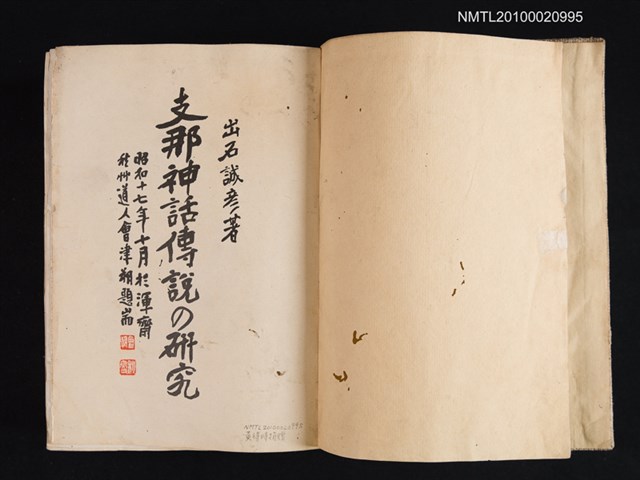 NMTL20100020995
出石誠彦著
支那神話傳說の研究
昭和十七年十月於渾齋
秋艸道人會津朔題耑